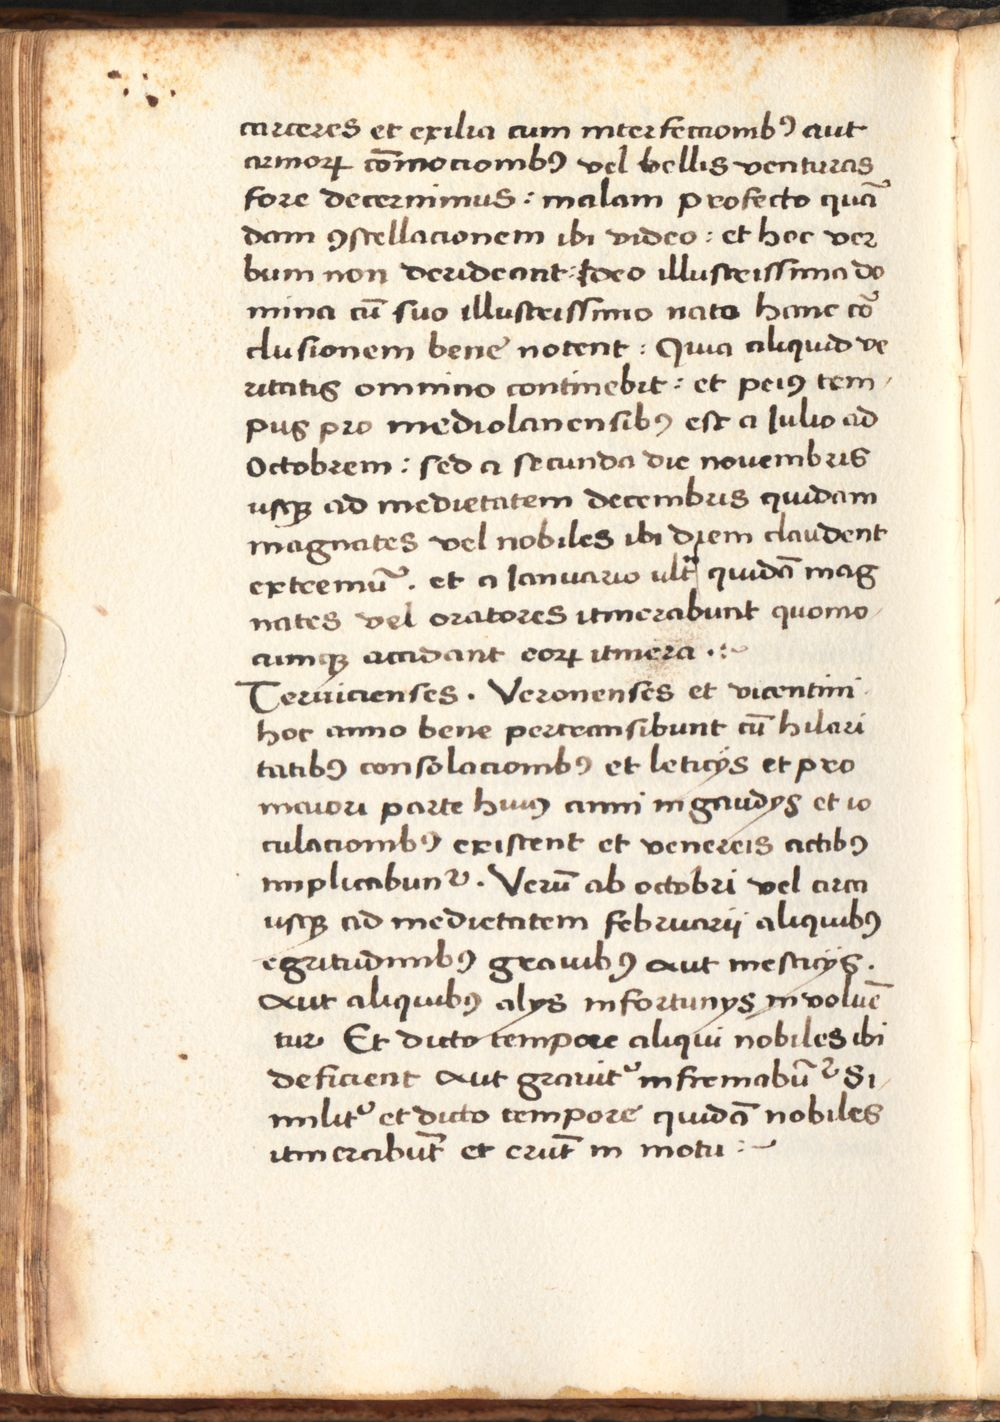 carceres et exilia cum interfectionibꝰ aut
armoꝝ cōmocionibꝰ vel bellis venturas
fore decernimus : malam profecto quā
dam ꝯstellacionem ibi video : et hoc ver
bum non derideant : Ideo illustrissima do
mina cū suo illustrissimo nato hanc cō
clusionem bene notent : Quia aliquid ve
ritatis omnino continebit : et peiꝰ tem-
pus pro mediolanensibꝰ est a Iulio ad
Octobrem : sed a secunda die novembris
usqꝫ ad medietatem decembris quidam
magnates vel nobiles ibi diem claudent
extremū . et a Ianuario ult quidā mag
nates vel oratores itinerabunt quomo-
cumqꝫ accidant eoꝝ itinera .:~
Tervicienses . Veronenses et vicentini
hoc anno bene pertransibunt cū hilari
tatibꝰ consolacionibꝰ et leticijs et pro
maiori parte huiꝰ anni in gaudijs et io
culacionibꝰ existent et venereis actibꝰ
implicabunᷣ . Verū ab octobri vel circa
usqꝫ ad medietatem februarij aliquibꝰ
egritudinibꝰ gravibꝰ aut mesticijs .
Aut aliquibꝰ alijs infortunijs involuē
tur . Et dicto tempore aliqui nobiles ibi
deficient aut gravit᾽ infirmabūᷣ Si-
milit᾽ et dicto tempore quidā nobiles
itinerabūt et erūt in motu :~